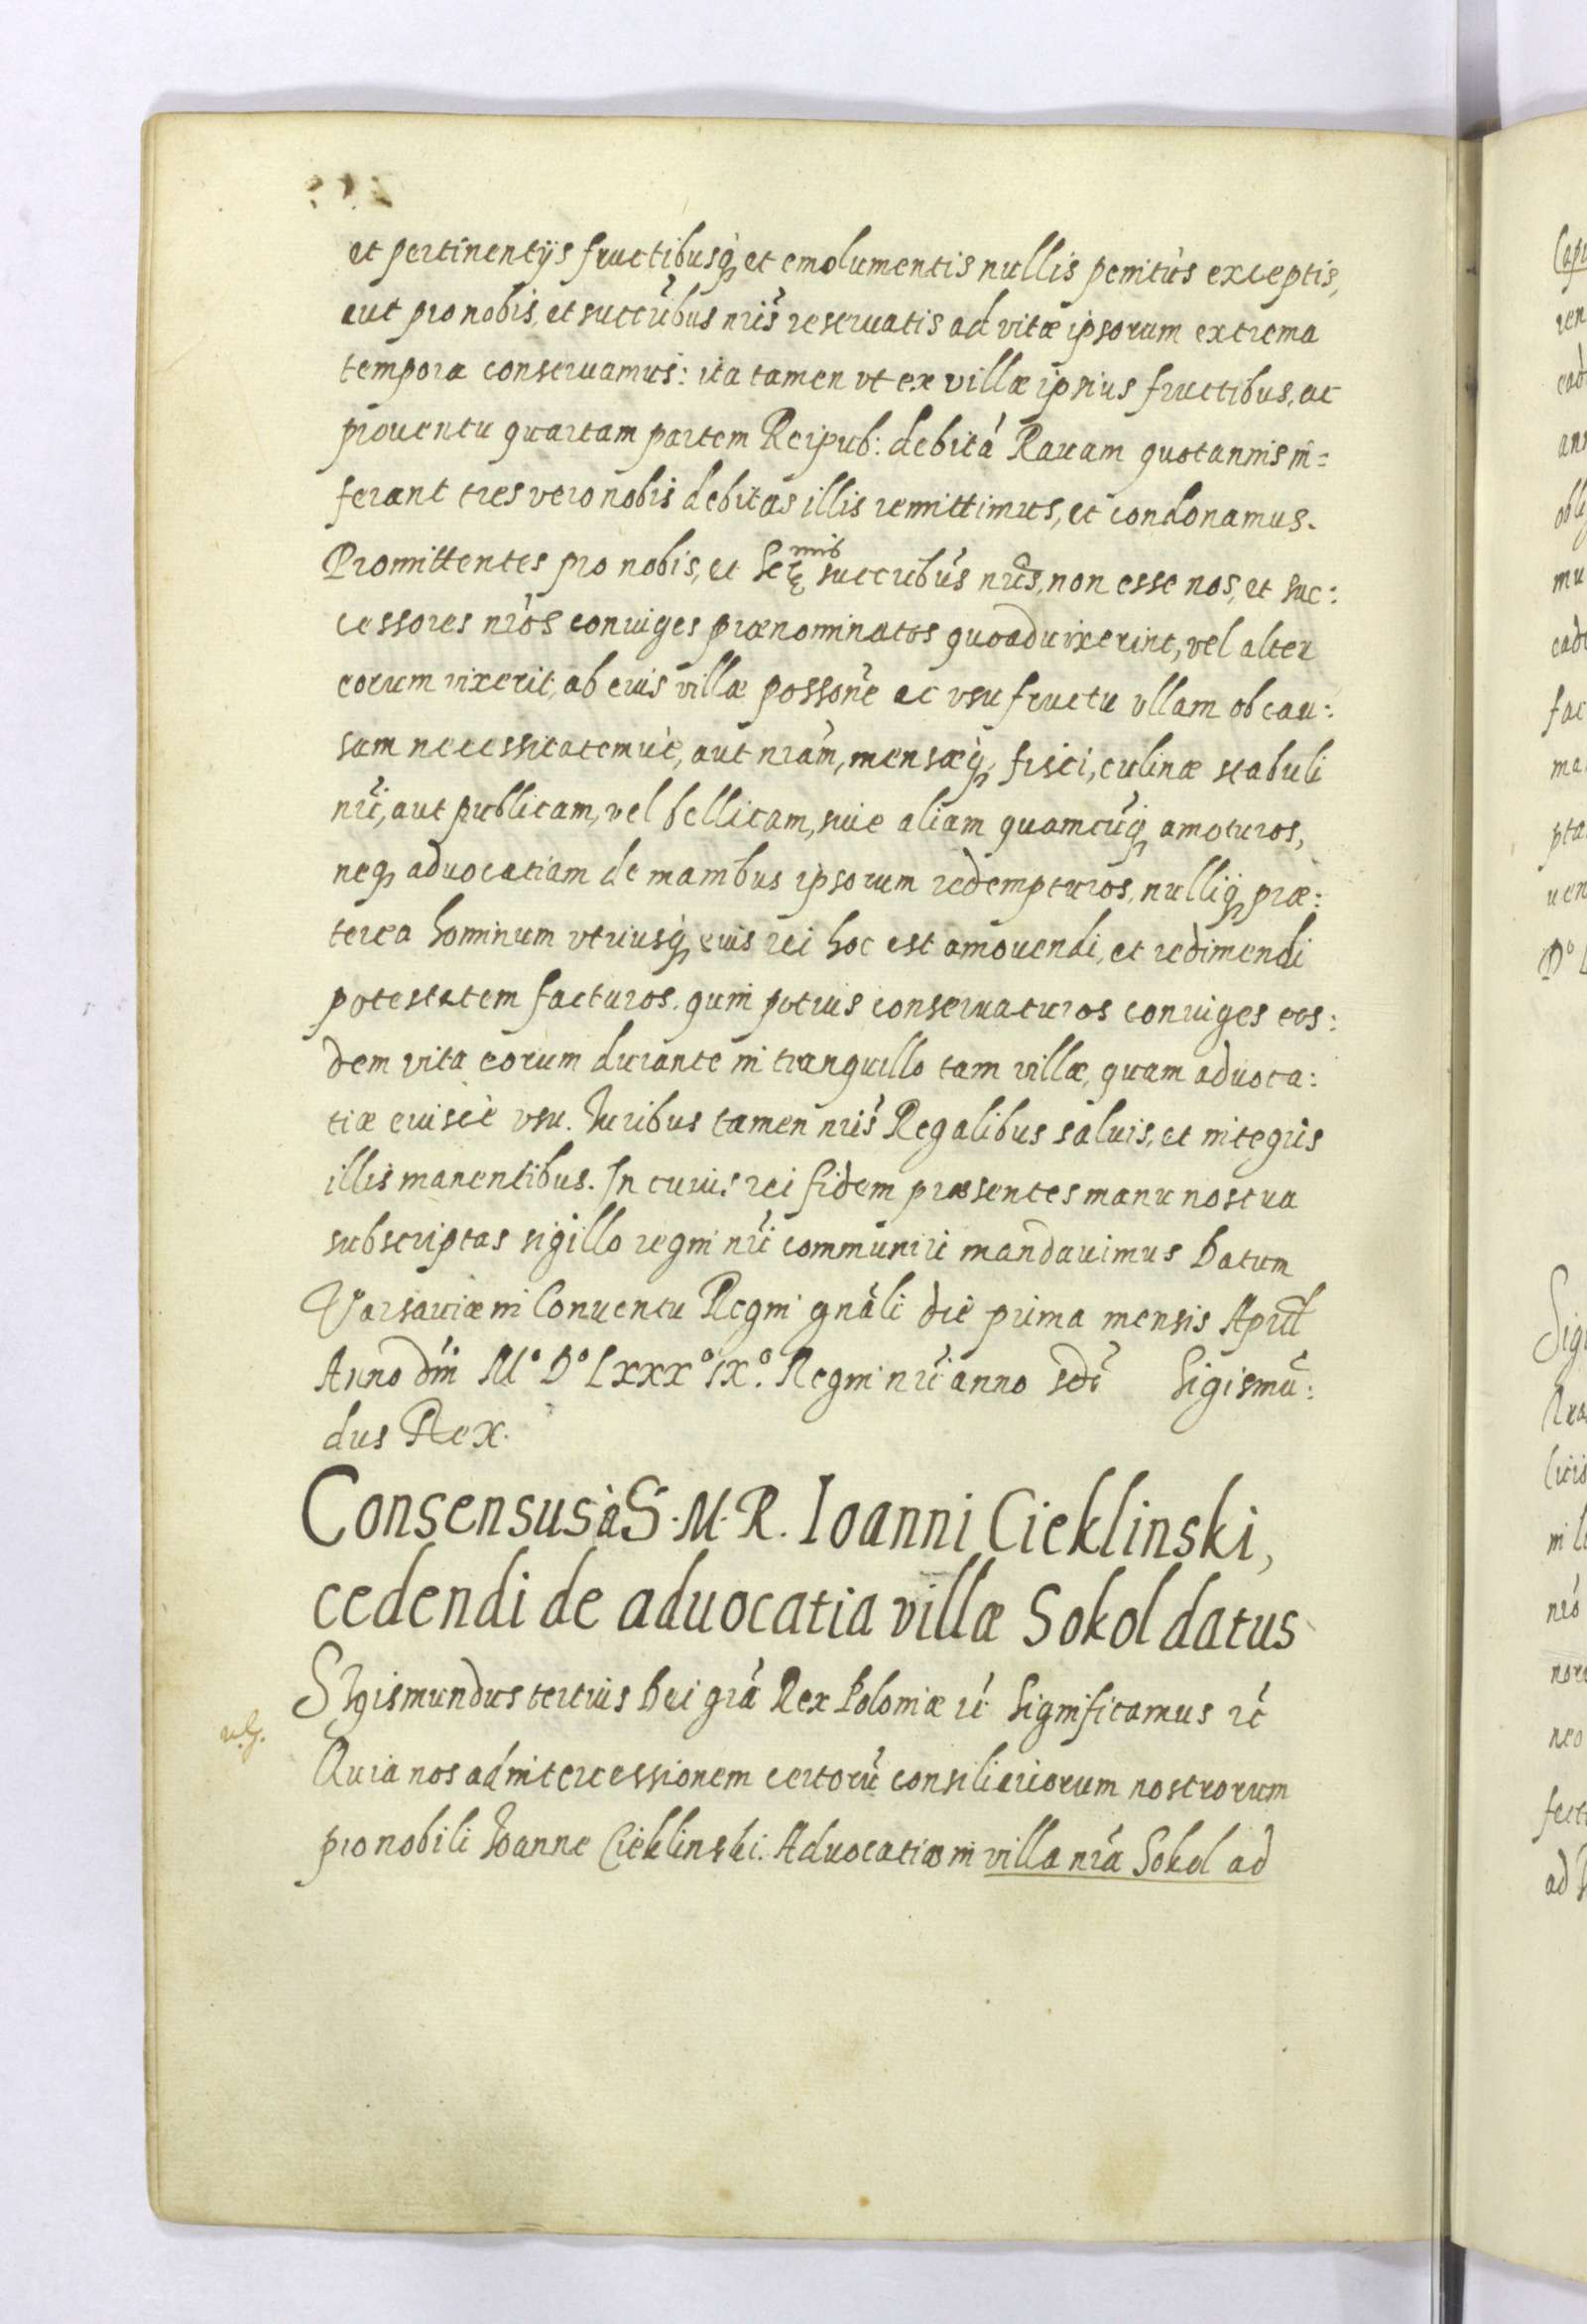 et pertinentijs fructibusq́ꝫ et emolumentis nullis penitùs exceptis,
aut pro nobis, et succūbus nr̄is reseruatis ad vitæ ipsorum extrema
tempora conseruamus: ita tamen vt ex villæ ipsius fructibus, ac
prouentu quartam partem Reipub: debitā Rauam quotannis in=
ferant tres vero nobis debitas illis remittimus, et condonamus.
Promittentes pro nobis, et Seꝛ̨ mis succribūs nr̄is, non esse nos, et suc:
cessores nr̄os coniuges prænominatos quoaduixerint, vel alter
eorum vixerit, ab eius villæ possōne ac vsu fructu vllam ob cau:
sam necessitatemuè, aut nrām, mensæq́ꝫ, fisci, culinæ stabuli
nr̄i, aut publicam, vel bellicam, siue aliam quamcūqꝫ amoturos,
neqꝫ aduocatiam de manibus ipsorum redempturos, nulliq́ꝫ præ:
terea hominum vtriusq́ꝫ eius rei hoc est amouendi, et redimendi
potestatem facturos. quin potius conseruaturos coniuges eos:
dem vita eorum durante in tranquillo tam villæ, quam aduoca:
tiæ eiuscè vsu. Iuribus tamen nr̄is Regalibus saluis, et integris
illis manentibus. In cuius rei fidem præsentes manu nostra
subscriptas sigillo regni nr̄i communiri mandauimus Datum
Varsauiæ in Conuentu Regni gnāli die prima mensis April
Anno dn̄i M° D° LXXX° IX°. Regni nr̄i anno scd̄o Sigismū:
dus Rex.
Consensus à S. M. R. Ioanni Cieklinski,
cedendi de aduocatia villæ Sokol datus
SIgismundus tertius Dei grā Rex Poloniæ et̄c Significamus et̄c
Quia nos ad intercessionem certorū consiliariorum nostrorum
pro nobili Ioanne Cieklinski. Aduocatiæ in villa nrā Sokol ad